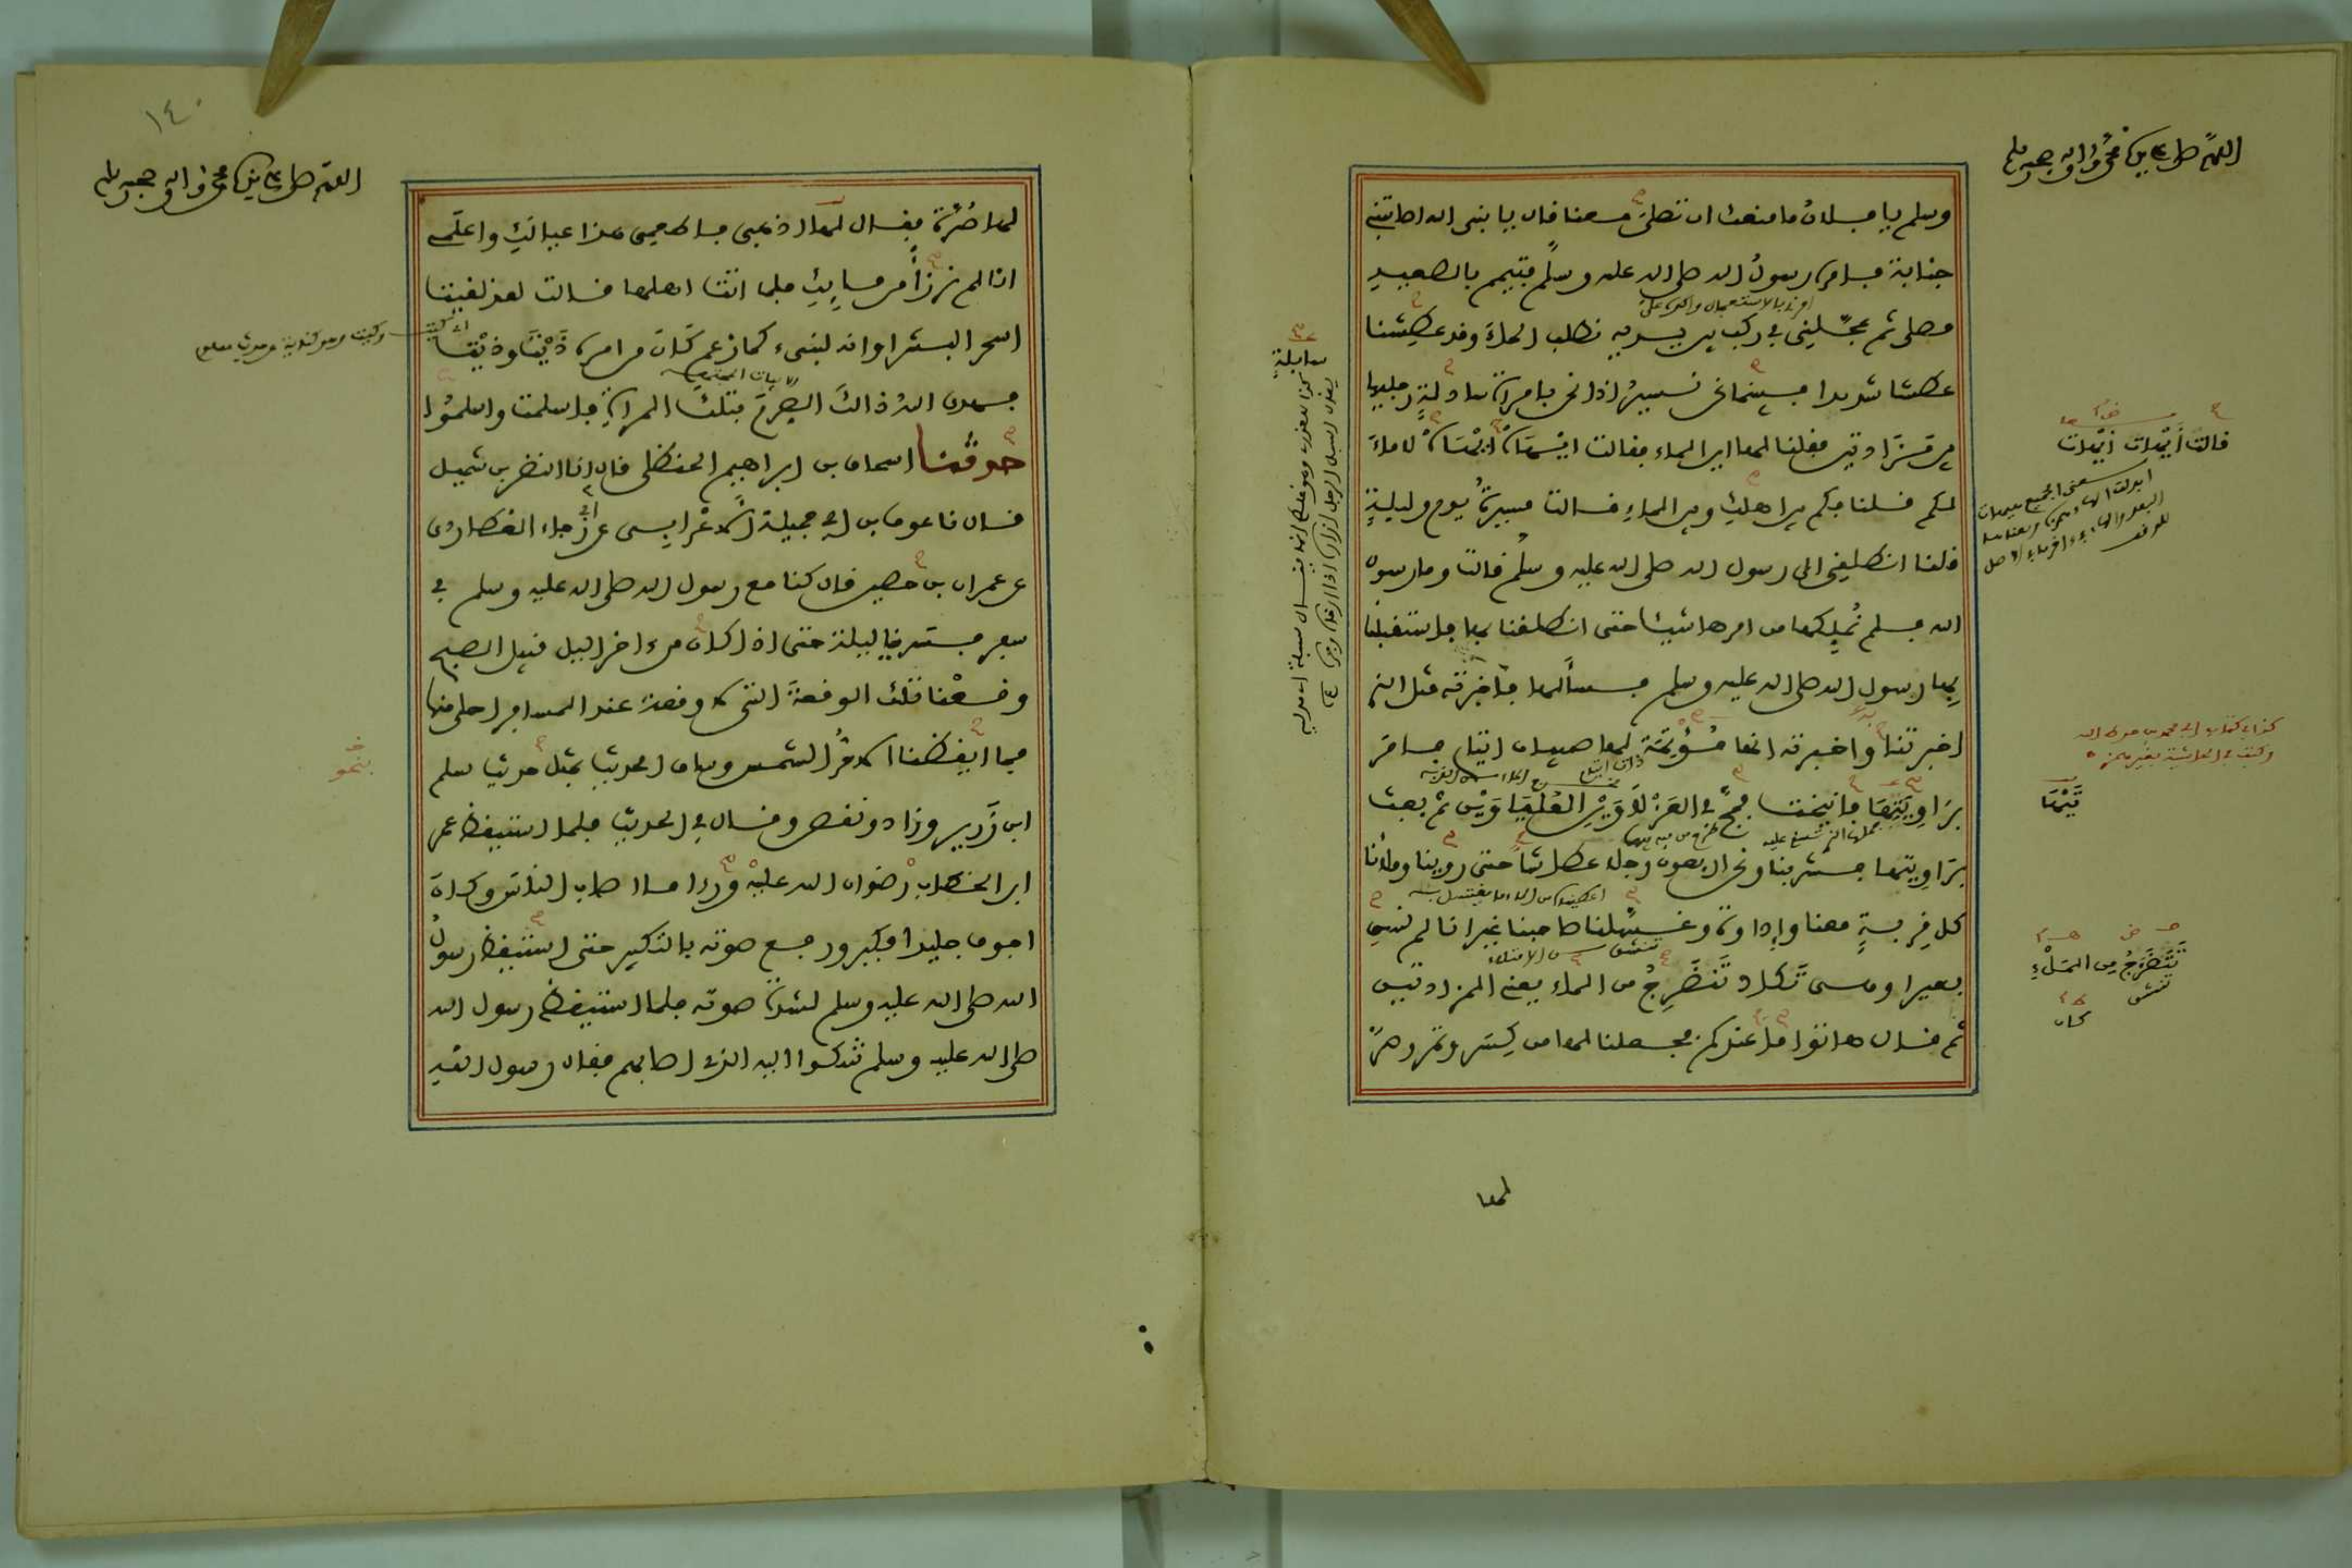 اللهم صل على سيدنا محمد وءاله وصحبه وسلم
وسلم يا فلان ما منعك ان تصلي معنا قال يا نبي الله اصابتني
جنابة فامره رسول الله صلى الله عليه وسلم فتيمم بالصعيد
فصلى ثم عجلني في ركب بين يديه نطلب الماء وقد عطشنا
عطشا شديدا فبينما نحن نسير اذا نحن بامراة سادلة رجليها
بين مزادتين فقلنا لها اين الماء فقالت ايهاه ايهاه لا ماء
لكم قلنا فكم بين اهلك وبين الماء قالت مسيرة يوم وليلة
قلنا انطلقي الى رسول الله صلى الله عليه وسلم قالت وما رسول
الله فلم نملكها من امرها شيئا حتى انطلقنا بها فاستقبلنا
بها رسول الله صلى الله عليه وسلم فسألها فأخبرته مثل الذي
اخبرتنا واخبرته انها مؤتمة لها صبيان ايتام فامر
براويتها فانيخت فمج في العزلاوين العلياوين ثم بعث
براويتها فشربنا ونحن اربعون رجلا عطاشا حتى روينا وملأنا
كل قربة معنا وإداوة وغسلنا صاحبنا غير انا لم نسق
بعيرا وهي تكاد تنضرج من الماء يعني المزادتين
ثم قال هاتوا ما عندكم فجمعنا لها من كسر وتمر وصر
لها
قالت أيهات أيهات
تتضرج من الملء
تنشق
كان
سابلة
اللهم صل على سيدنا محمد وءاله وصحبه وسلم
١٤٠
لها صرة فقال لها اذهبي فاطعمي هذا عيالك واعلمي
انا لم نرزأ من مايك فلما اتت اهلها قالت لقد لقيت
اسحر البشر او انه لنبيء كما زعم كان من امره ذيت وذيت
فهدى الله ذاك الصرم بتلك المراة فاسلمت واسلموا
حدثنا اسحاق بن ابراهيم الحنظلي قال انا النضر بن شميل
قال نا عوف بن ابي جميلة الاعرابي عن ابي رجاء العطاردي
عن عمران بن حصين قال كنا مع رسول الله صلى الله عليه وسلم في
سفر فسرينا ليلة حتى اذا كان من ءاخر الليل قبيل الصبح
وقعنا تلك الوقعة التي لا وقعة عند المسافر احلى منها
فما ايقظنا الا حر الشمس وساق الحديث بمثل حديث سلم
ابن زرير وزاد ونقص وقال في الحديث فلما استيقظ عمر
ابن الخطاب رضوان الله عليه ورءا ما اصاب الناس وكان
اجوف جليدا فكبر ورفع صوته بالتكبير حتى استيقظ رسول
الله صلى الله عليه وسلم لشدة صوته فلما استيقظ رسول الله
صلى الله عليه وسلم شكوا اليه الذي اصابهم فقال رسول الله
بنحو